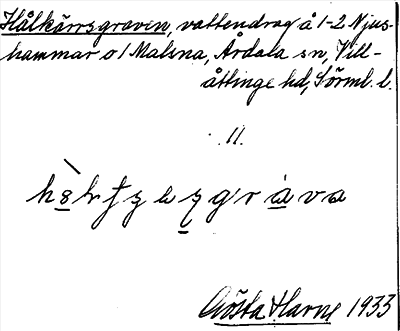 Hålkärrsgraven, vattendrag å 1-2 Njus-
hammar o 1 Malena, Årdala sn, Vill-
åttinge hd, Sörml. l.
11.
Gösta Harne 1933